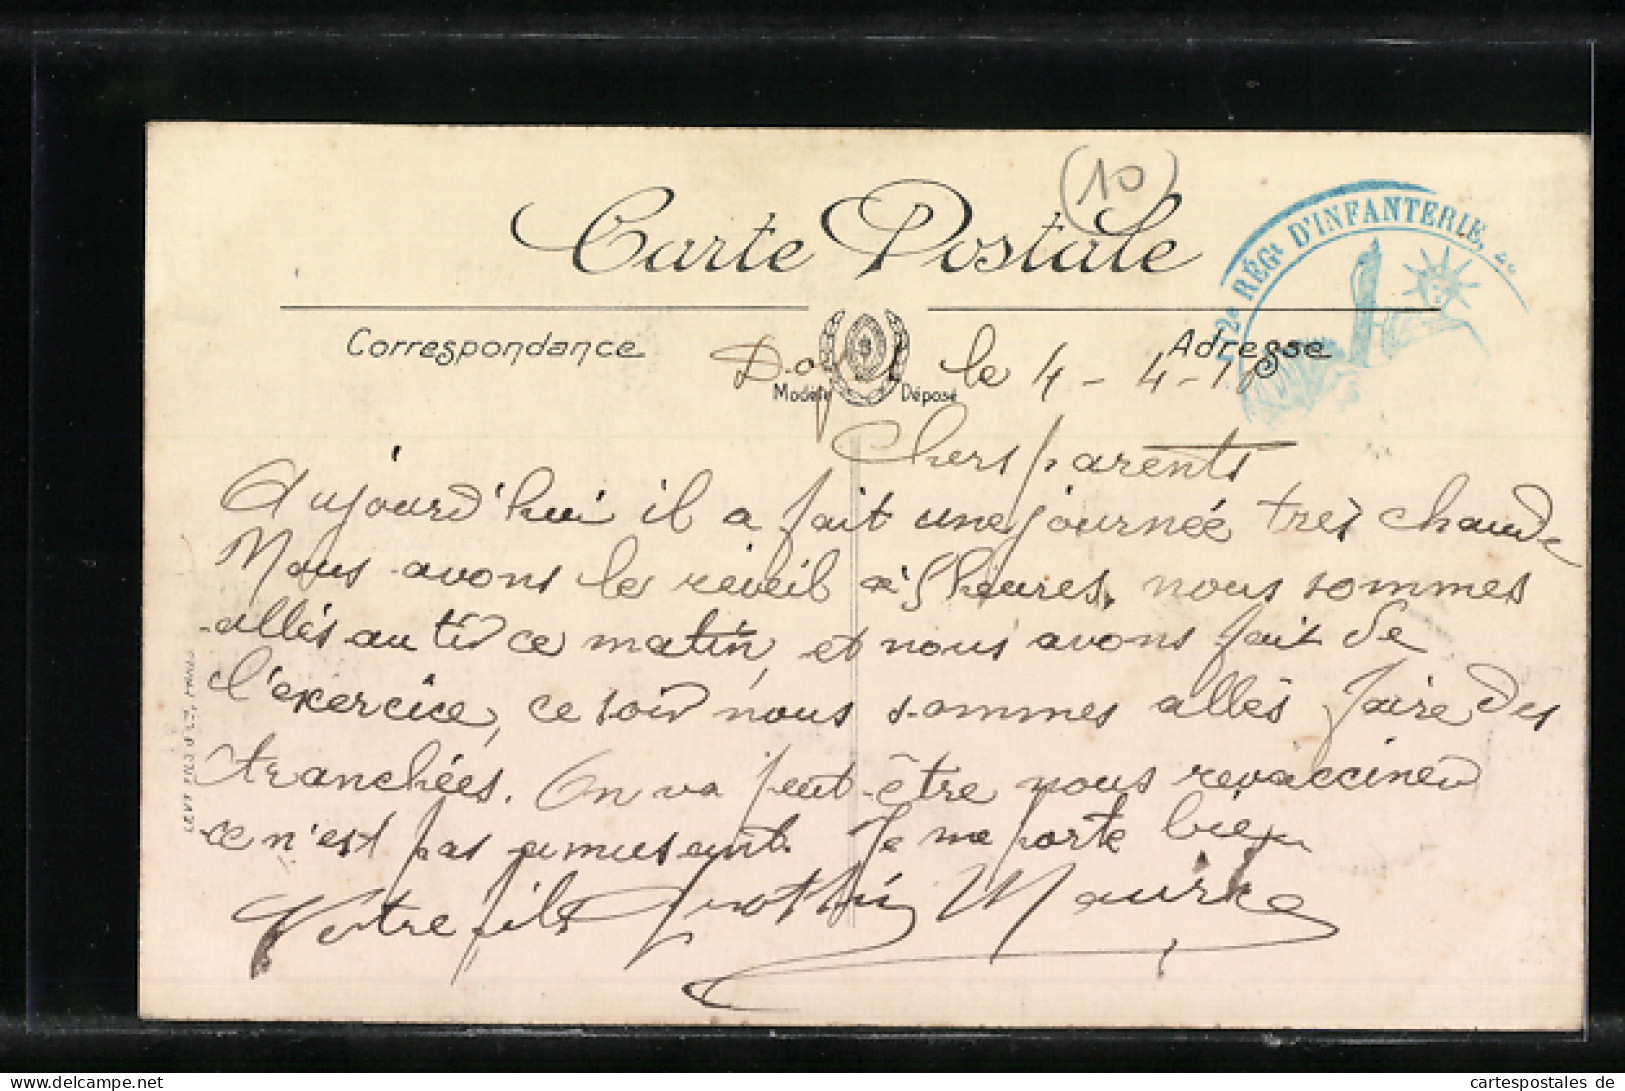 (10)
Carte Postale
RÉGt D'INFANTERIE,
Correspondance
Adresse
Modèle Déposé
le 4-4-1
Chers parents
Aujourd'hui il a fait une journée très chaude
Nous avons le réveil à 5 heures, nous sommes
allés au tir ce matin, et nous avons fait de
l'exercice, ce soir nous sommes allés faire des
tranchées. On va peut-être nous revacciner
ce n'est pas amusant. Je me porte bien
Votre fils Maurice
LEVY FILS & Cie, PARIS
cartespostales de